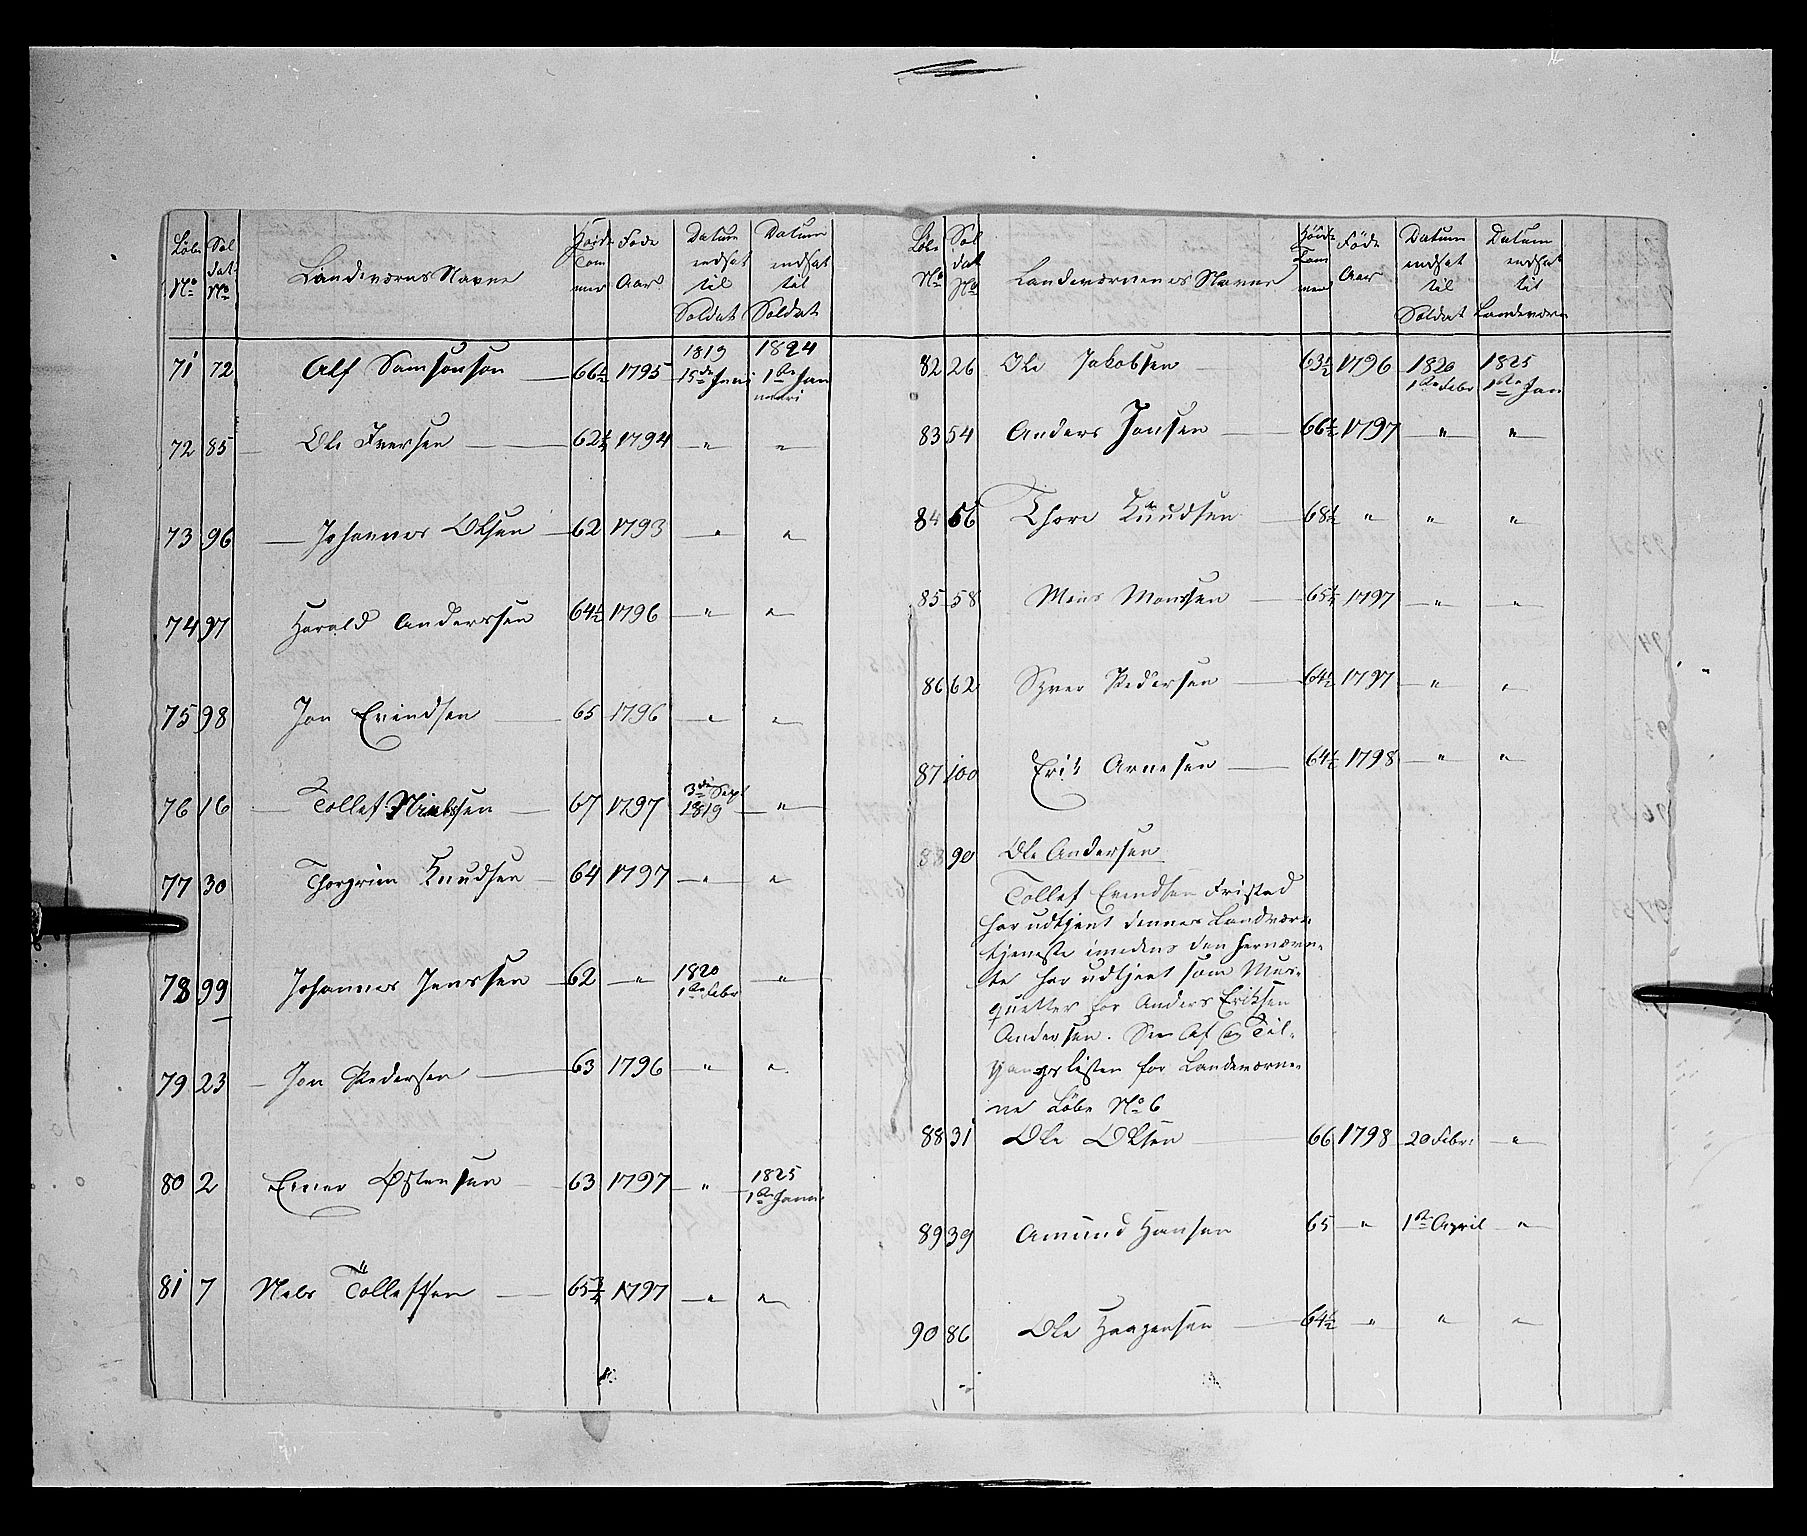 Løbe No | Sol dat No | Landeværns Navne | Høide Tom mer | Føde Aar | Datum indsat til Soldat | Datum indsat til Soldat
71 | 72 | Alf Samsonson | 66½ | 1795 | 1819 15de Juni | 1824 1ste Jan nuari
72 | 85 | Ole Iversen | 62½ | 1794 | " | "
73 | 96 | Johannes Olsen | 62 | 1793 | " | "
74 | 97 | Harald Anderssen | 64½ | 1796 | " | "
75 | 98 | Jon Evindsen | 65 | 1796 | " | "
76 | 16 | Tollef Nielssen | 67 | 1797 | 3de Sept 1819 | "
77 | 30 | Thorgrim Knudsen | 64 | 1797 | " | "
78 | 99 | Johannes Jenssen | 62 | " | 1820 1ste Febr | "
79 | 23 | Jon Pedersen | 63 | 1796 | " | "
80 | 2 | Ener Østensen | 63 | 1797 | " | 1825 1ste Janu
81 | 7 | Nels Tollefsen | 65¾ | 1797 | " | "
Løbe No | Sol dat No | Landeværnenes Navne | Høide Tom mer | Føde Aar | Datum indsat til Soldat | Datum indsat til Landeværn
82 | 26 | Ole Jakobsen | 63½ | 1796 | 1820 1ste Febr | 1825 1ste Jan
83 | 54 | Anders Jonsen | 66½ | 1797 | " | "
84 | 56 | Thore Knudsen | 68½ | " | " | "
85 | 58 | Mons Monssen | 65½ | 1797 | " | "
86 | 62 | Syver Pedersen | 64½ | 1797 | " | "
87 | 100 | Erik Arnesen | 64½ | 1798 | " | "
88 | 90 | Ole Andersen
Tollef Evindsen Fristad
har udtjent dennes Landværn
tjeneste imedens den hernævn-
te har udtjent som Mus-
quetter for Anders Eriksen
Andersen. See Af & Til-
gangslisten for Landeværne-
ne Løbe No 6
88 | 31 | Ole Olsen | 66 | 1798 | 20 Febr: | "
89 | 39 | Amund Hansen | 65 | " | 1ste April | "
90 | 86 | Ole Haagensen | 64½ | " | " | "